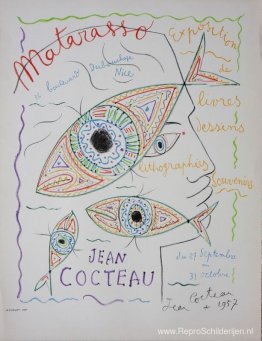 Matarasso
Exposition
de
boulevard Dubouchage
Nice
livres
dessins
lithographies
Souvenirs
JEAN
COCTEAU
du 27 Septembre
au
31 octobre
Jean Cocteau
1957
www.ReproSchilderijen.nl